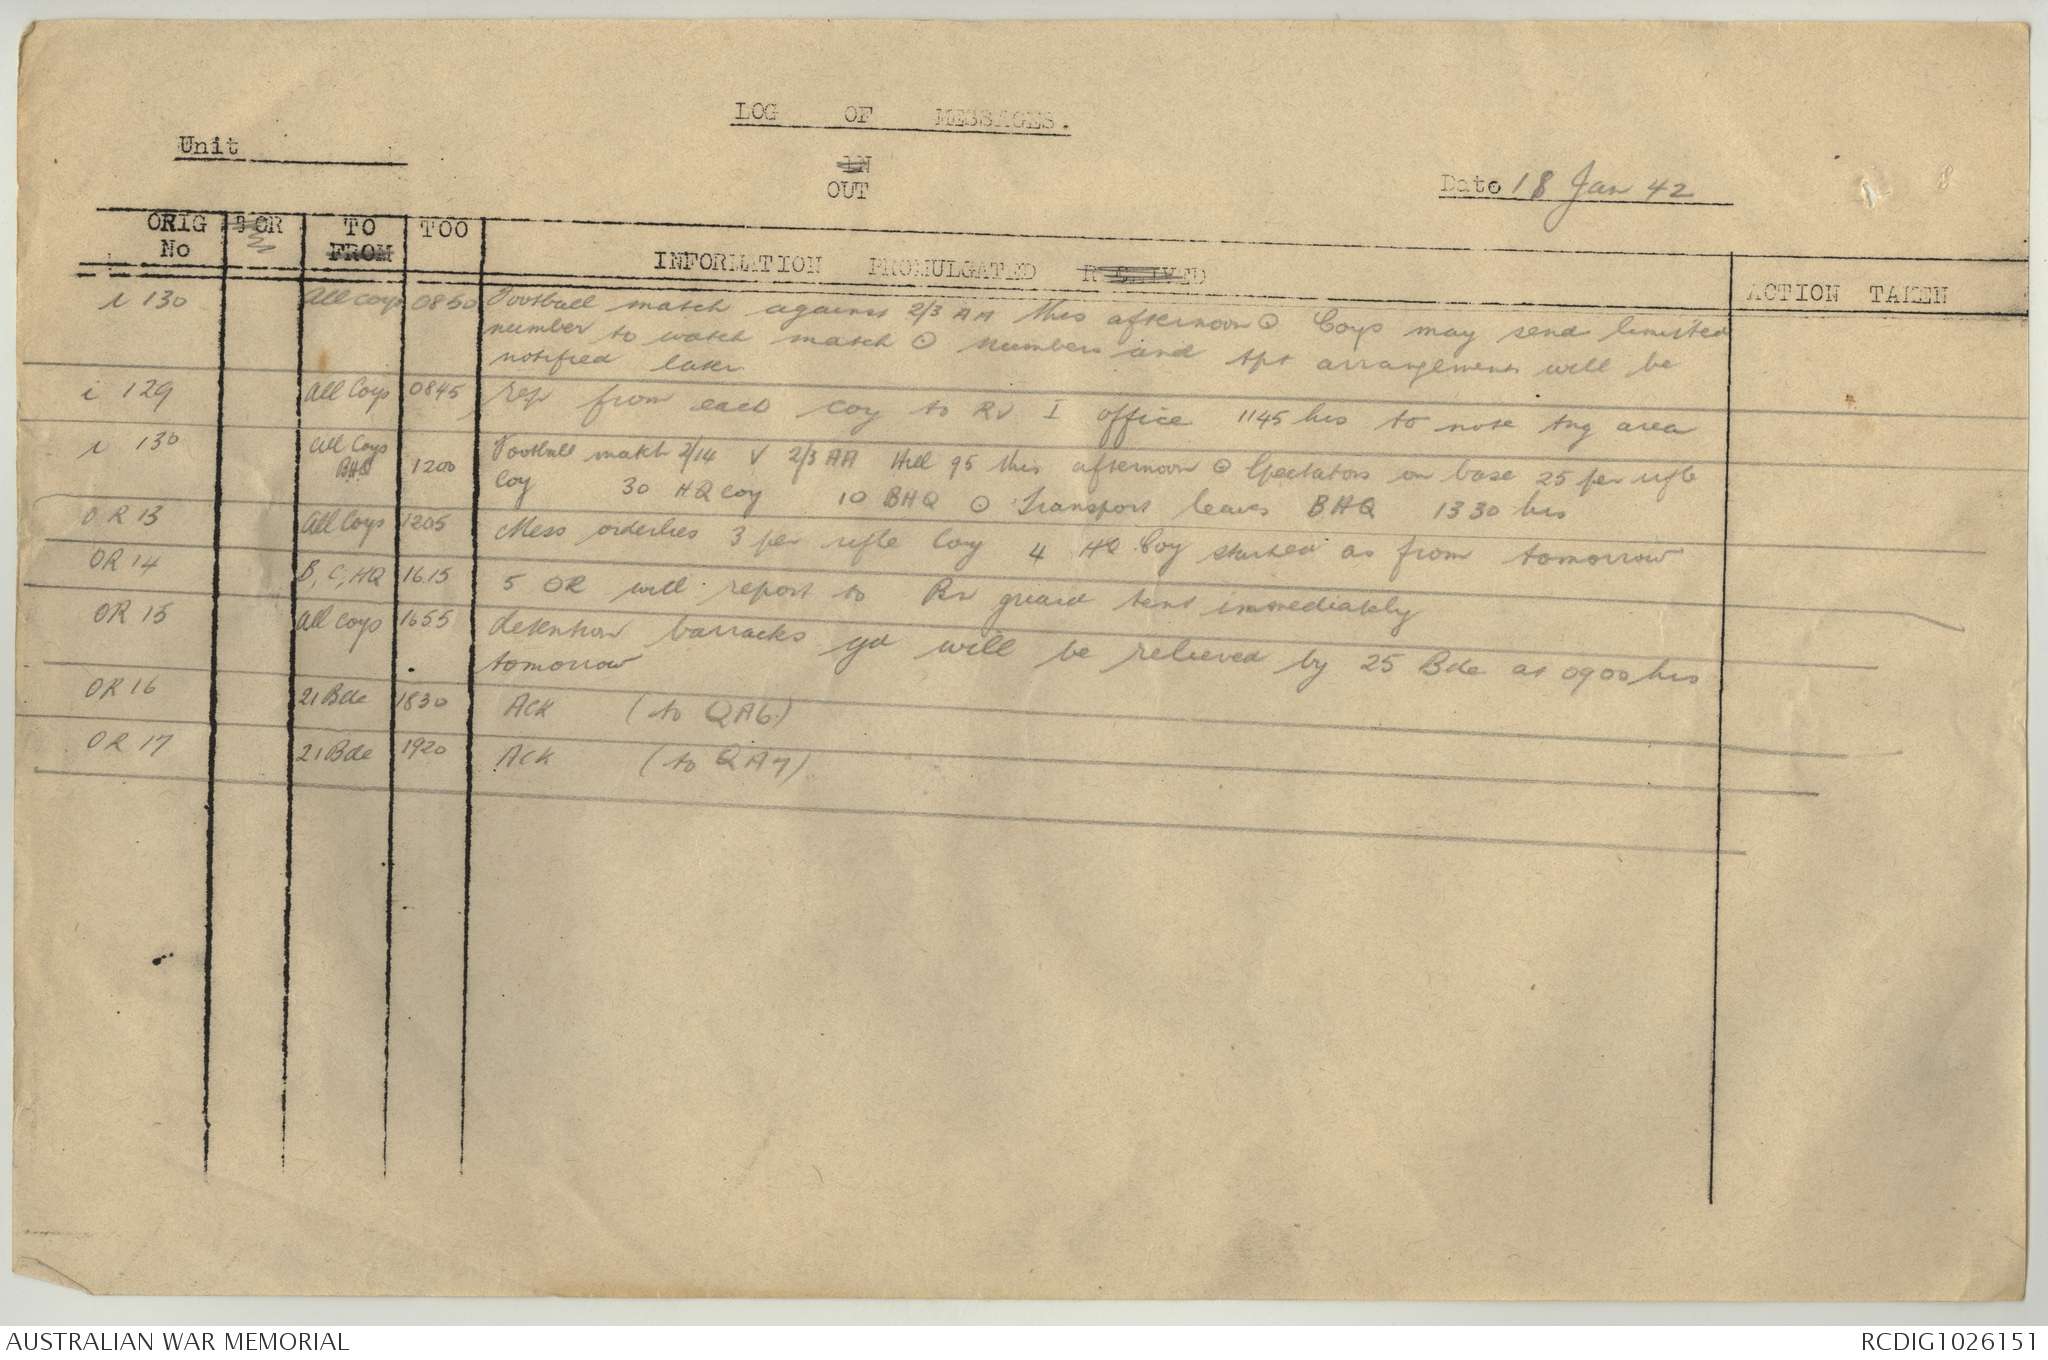 LOG OF MESSAGES.
Unit
IN
OUT
Date 18 Jan 42
ORIG No TO FROM TOO INFORMATION PROMULGATED RECEIVED ACTION TAKEN
i 130 All Coys 0850 Football match against 2/3 AA this afternoon ⊙ Coys may send limited
number to watch match ⊙ numbers and tpt arrangements will be
notified later
i 129 All Coys 0845 rep from each coy to Rv I office 1145 hrs to note tng area
i 130 All Coys BHQ 1200 Football match 2/14 v 2/3 AA Hill 95 this afternoon ⊙ Spectators on base 25 per rifle
Coy 30 HQ Coy 10 BHQ ⊙ Transport leaves BHQ 1330 hrs
OR 13 All Coys 1205 Mess orderlies 3 per rifle Coy 4 HQ Coy started as from tomorrow
OR 14 B, C, HQ 1615 5 OR will report to Rv guard tent immediately
OR 15 All Coys 1655 detention barracks gd will be relieved by 25 Bde at 0900 hrs
tomorrow
OR 16 21 Bde 1830 Ack (to QA6)
OR 17 21 Bde 1920 Ack (to QA7)
AUSTRALIAN WAR MEMORIAL
RCDIG1026151